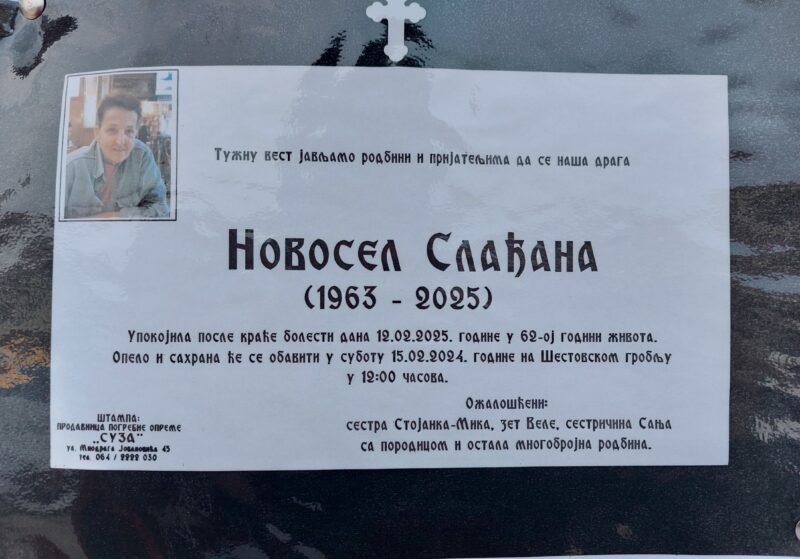 Тужну вест јављамо родбини и пријатељима да се наша драга
Новосел Слађана
(1963 - 2025)
Упокојила после краће болести дана 12.02.2025. године у 62-ој години живота.
Опело и сахрана ће се обавити у суботу 15.02.2024. године на Шестовском гробљу
у 12:00 часова.
Ожалошћени:
сестра Стојанка-Мика, зет Веле, сестричина Сања
са породицом и остала многобројна родбина.
ШТАМПА:
ПРОДАВНИЦА ПОГРЕБНЕ ОПРЕМЕ
„СУЗА"
ул. Миодрага Јовановића 45
тел. 064 / 2222 030